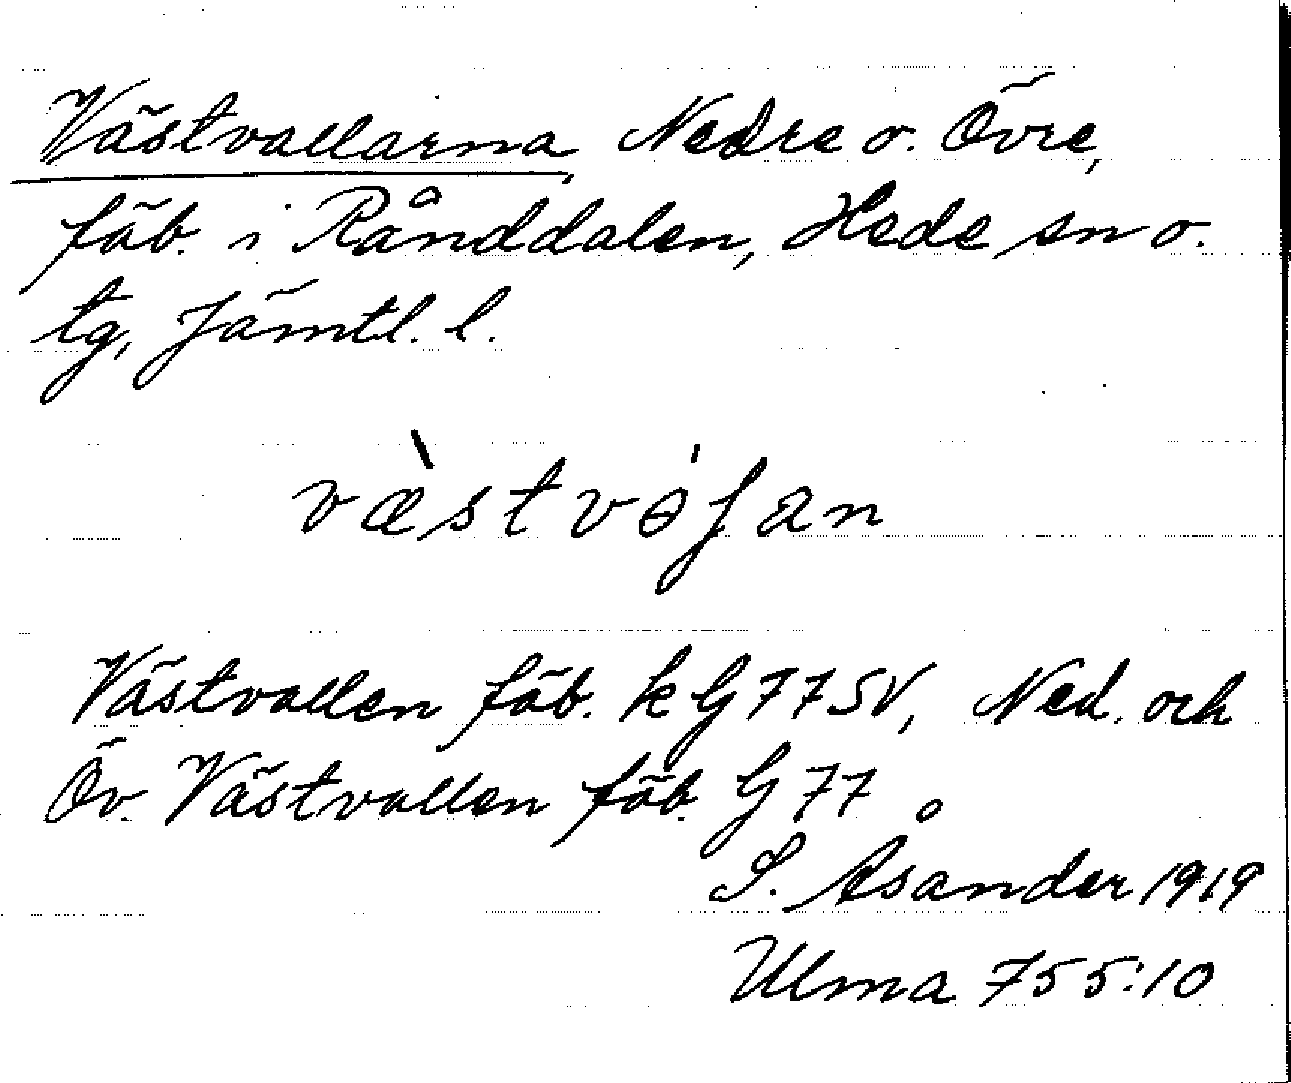 Västvallarna, Nedre o. Övre,
fäb. i Rånddalen, Hede sn o.
tg, Jämtl. l.
væ̀stvɵ́ſan
Västvallen fäb. k G77SV, Ned. och
Öv. Västvallen fäb. G77
S. Åsander 1919
Ulma 755:10